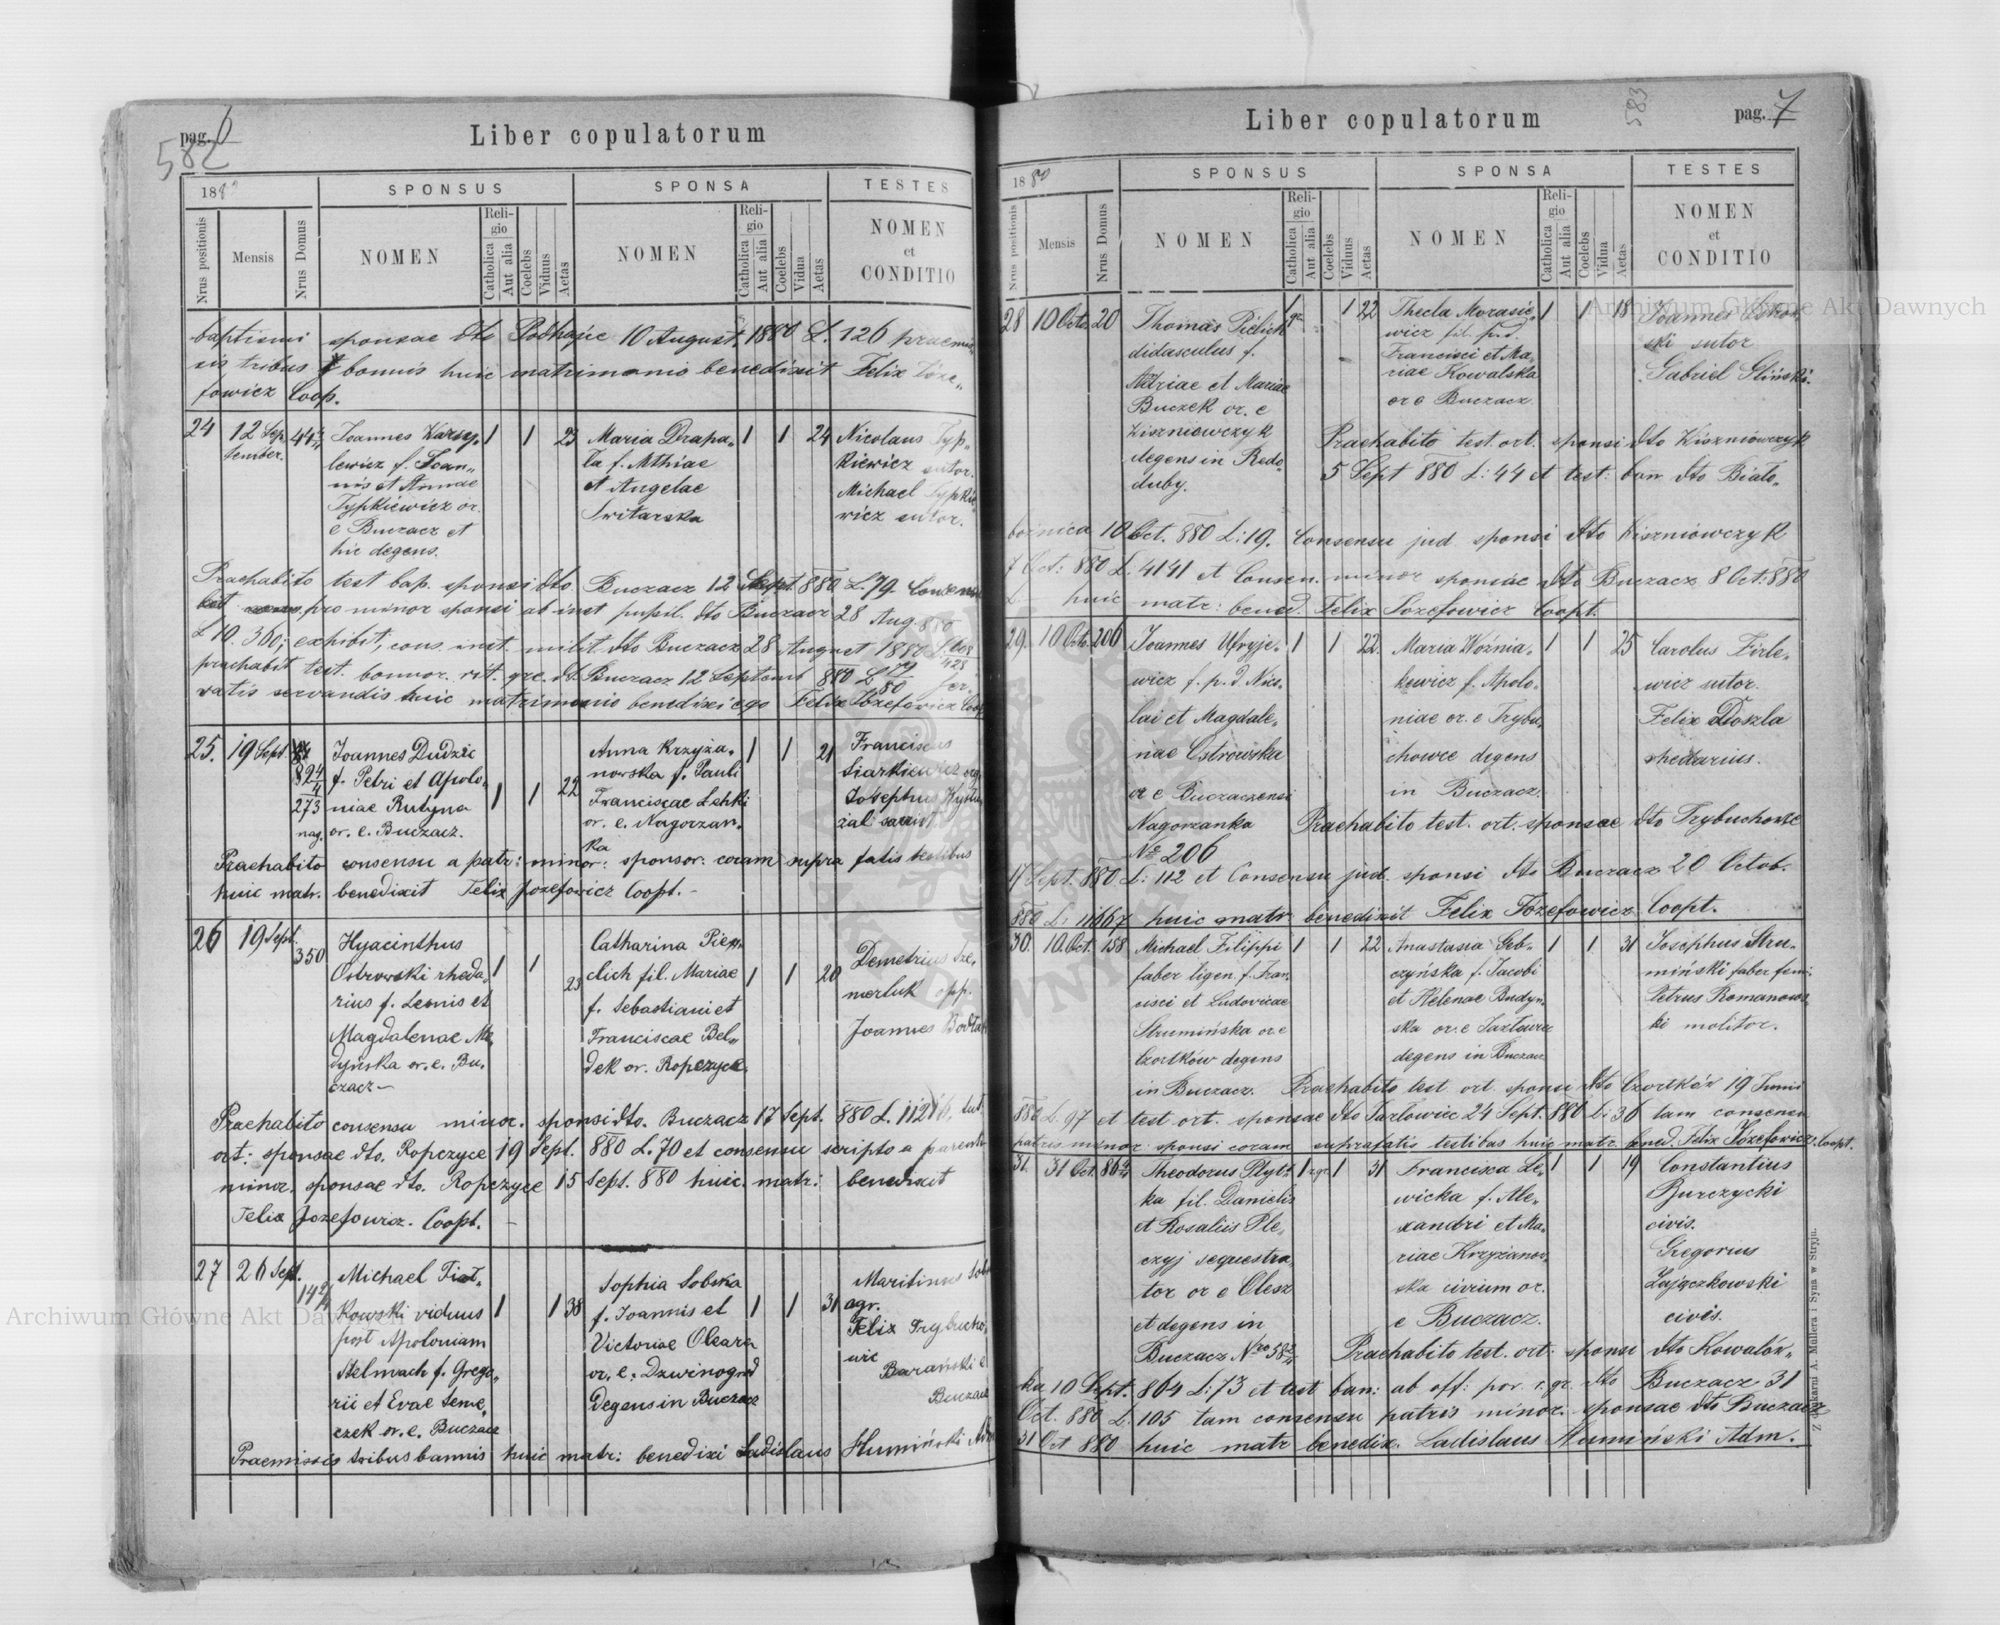 pag. 6
582
Liber copulatorum
188
SPONSUS
SPONSA
TESTES
Nrus positionis
Mensis
Nrus Domus
NOMEN
Religio
Catholica
Aut alia
Coelebs
Viduus
Aetas
NOMEN
Religio
Catholica
Aut alia
Coelebs
Vidua
Aetas
NOMEN
et
CONDITIO
baptismi sponsae dto Podhajce 10 August. 1880 L. 126 praemis
sis tribus bannis huic matrimonio benedixit Felix Józe
fowicz Coop.
24 12 Sep
tember.
Joannes Wasy
lewicz f. Joan
nis et Annae
Typkiewicz or.
e Buczacz et
hic degens.
1 1 23
Maria Drapa
ła f. Mthiae
et Angelae
Switarska
1 1 24
Nicolaus Typ
kiewicz sutor.
Michael Typkie
wicz sutor.
Praehabito test bap. sponsi dto Buczacz 12 Sept 880 L. 79. Consensu
pro minor sponsi ab inst pupil. dto Buczacz 28 Aug. 880
L 10. 360; exhibit, cons. inst. milit. dto Buczacz 28 August 1880
praehabit test. bannor. rit. grc. dt. Buczacz 12 Septemb 880 L 79/80
vatis servandis huic matrimonio benedixi ego Felix Józefowicz Coop
25. 19 Sept
824/4
273
nag.
Joannes Dudzic
f. Petri et Apolo
niae Rutyna
or. e. Buczacz.
1 1 22
Anna Krzyża
nowska f. Pauli
Franciscae Lehki
or. e. Nagorzan
ka
1 1 21
Franciscus
Siarkiewicz
Josephus
Praehabito consensu a patr: minor: sponsor: coram supra fatis testibus
huic matr. benedixit Felix Jozefowicz Coopt. –
26 19 Sept. 350
Hyacinthus
Ostrowski rheda
rius f. Leonis et
Magdalenae Me
dyńska or. e. Bu
czacz –
1 1 23
Catharina Piep
clich fil. Mariae
f. Sebastiani et
Franciscae Bel
dek or. Ropczyce.
1 1 20
Demetrius
merluk opp.
Joannes
Praehabito consensu minor. sponsi dto. Buczacz 17 Sept. 880 L. 11216.
ort: sponsae dto. Ropczyce 19 Sept. 880 L. 70 et consensu scripto a parent
minor. sponsae dto. Ropczyce 15 Sept. 880 huic. matr: benedixit
Felix Jozefowicz. Coopt. –
27 26 Sept. 142/4
Michael Fiał
kowski viduus
post Apoloniam
Stelmach f. Grego
rii et Evae Seme
czek or. e. Buczacz
1 1 38
Sophia Sobska
f. Joannis et
Victoriae Oleara
or. e. Dzwinogrod
Degens in Buczacz
1 1 31
Martinus
agr.
Felix Trybucho
wic
Barański e.
Buczacz
Praemissis tribus bannis huic matr: benedixi Ladislaus Humiński Adm
Liber copulatorum
583
pag. 7
1880
SPONSUS
SPONSA
TESTES
Nrus positionis
Mensis
Nrus Domus
NOMEN
Religio
Catholica
Aut alia
Coelebs
Viduus
Aetas
NOMEN
Religio
Catholica
Aut alia
Coelebs
Vidua
Aetas
NOMEN
et
CONDITIO
28 10 Octo. 20
Thomas Pielich
didasculus f.
Adriae et Mariae
Buczek or. e
Kiszniowczyk
degens in Redo
duby.
1 gr. 1 22
Thecla Morasie
wicz fil. p. d.
Francisci et Ma
riae Kowalska
or e Buczacz.
1 1 18
Joannes
ski sutor
Gabriel Gliński.
Praehabito test. ort. sponsi dto Kiszniówczyk
5 Sept 880 L: 44 et test: ban. dto Biało
boznica 10 Oct. 880 L: 19. Consensu jud sponsi dto Kiszniówczyk
7 Oct: 880 L. 4141 et Consen. minor sponsae dto Buczacz 8 Oct: 880
L – huic matr: bened. Felix Józefowicz Coopt.
29. 10 Octo. 206
Joannes Ufryje
wicz f. p. d. Nico
lai et Magdale
nae Ostrowska
or e Buczaczensi
Nagorzanka
No 206
1 1 22.
Maria Woźnia
kiewicz f. Apolo
niae or. e Trybu
chowce degens
in Buczacz.
1 1 25
Carolus Firle
wicz sutor.
Felix Doszla
rhedarius.
Praehabito test. ort. sponsae dto Trybuchowce
17 Sept. 880 L: 112 et Consensu jud. sponsi dto Buczacz 20 Octob.
880 L: 11667 huic matr. benedixit Felix Józefowicz Coopt.
30. 10. Oct. 158
Michael Filippi
faber ligen. f. Fran
cisci et Ludovicae
Strumińska or e
Czortków degens
in Buczacz.
1 1 22
Anastasia Geb
czyńska f. Jacobi
et Helenae Budyn
ska or. e Jazłowiec
degens in Buczacz
1 1 31
Josephus Stru
miński faber
Petrus Romanows
ki molitor.
Praehabito test ort. sponsi dto Czortków 19 Junii
880 L. 97 et test ort. sponsae dto Jazłowiec 24 Sept. 880 L: 36 tam consensu
patris minor sponsi coram suprafatis testibus huic matr. bened. Felix Józefowicz. Coopt.
31. 31 Oct.
Theodorus Plyt
ka fil. Danielis
et Rosaliis Ple
czyj sequestra
tor or e Olesz
et degens in
Buczacz Nro 58
1 1 31
Francisca Le
wicka f. Ale
xandri et Ma
riae Krzyżanow
ska civium or.
e Buczacz.
1 1 19
Constantius
Burczycki
civis.
Gregorius
Zajączkowski
civis.
Praehabito test. ort. sponsi dto Kowalów
ka 10 Sept. 864 L: 73 et test ban: ab off: par. r. gr. dto Buczacz 31
Oct. 880 L. 105 tam consensu patris minor. sponsae dto Buczacz
31 Oct 880 huic matr benedix. Ladislaus Humiński Adm.
Z drukarni A. Müllera i Syna w Stryju.
Archiwum Główne Akt Dawnych
Archiwum Główne Akt Dawnych